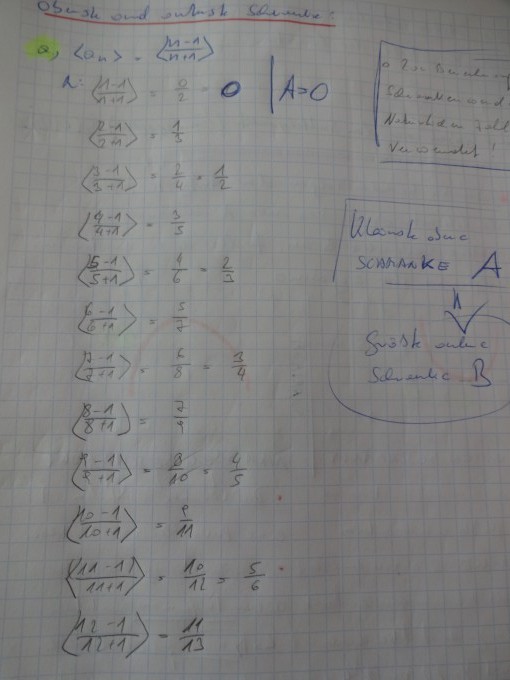 Oberste und unterste Schranke:
a) ⟨an⟩ = ⟨n-1/n+1⟩
⟨1-1/1+1⟩ = 0/2 = 0 | A=0
⟨2-1/2+1⟩ = 1/3
⟨3-1/3+1⟩ = 2/4 = 1/2
⟨4-1/4+1⟩ = 3/5
⟨5-1/5+1⟩ = 4/6 = 2/3
⟨6-1/6+1⟩ = 5/7
⟨7-1/7+1⟩ = 6/8 = 3/4
⟨8-1/8+1⟩ = 7/9
⟨9-1/9+1⟩ = 8/10 = 4/5
⟨10-1/10+1⟩ = 9/11
⟨11-1/11+1⟩ = 10/12 = 5/6
⟨12-1/12+1⟩ = 11/13
Schranken
Verwendet!
Kleinste obere
SCHRANKE A
Größte untere
Schranke B